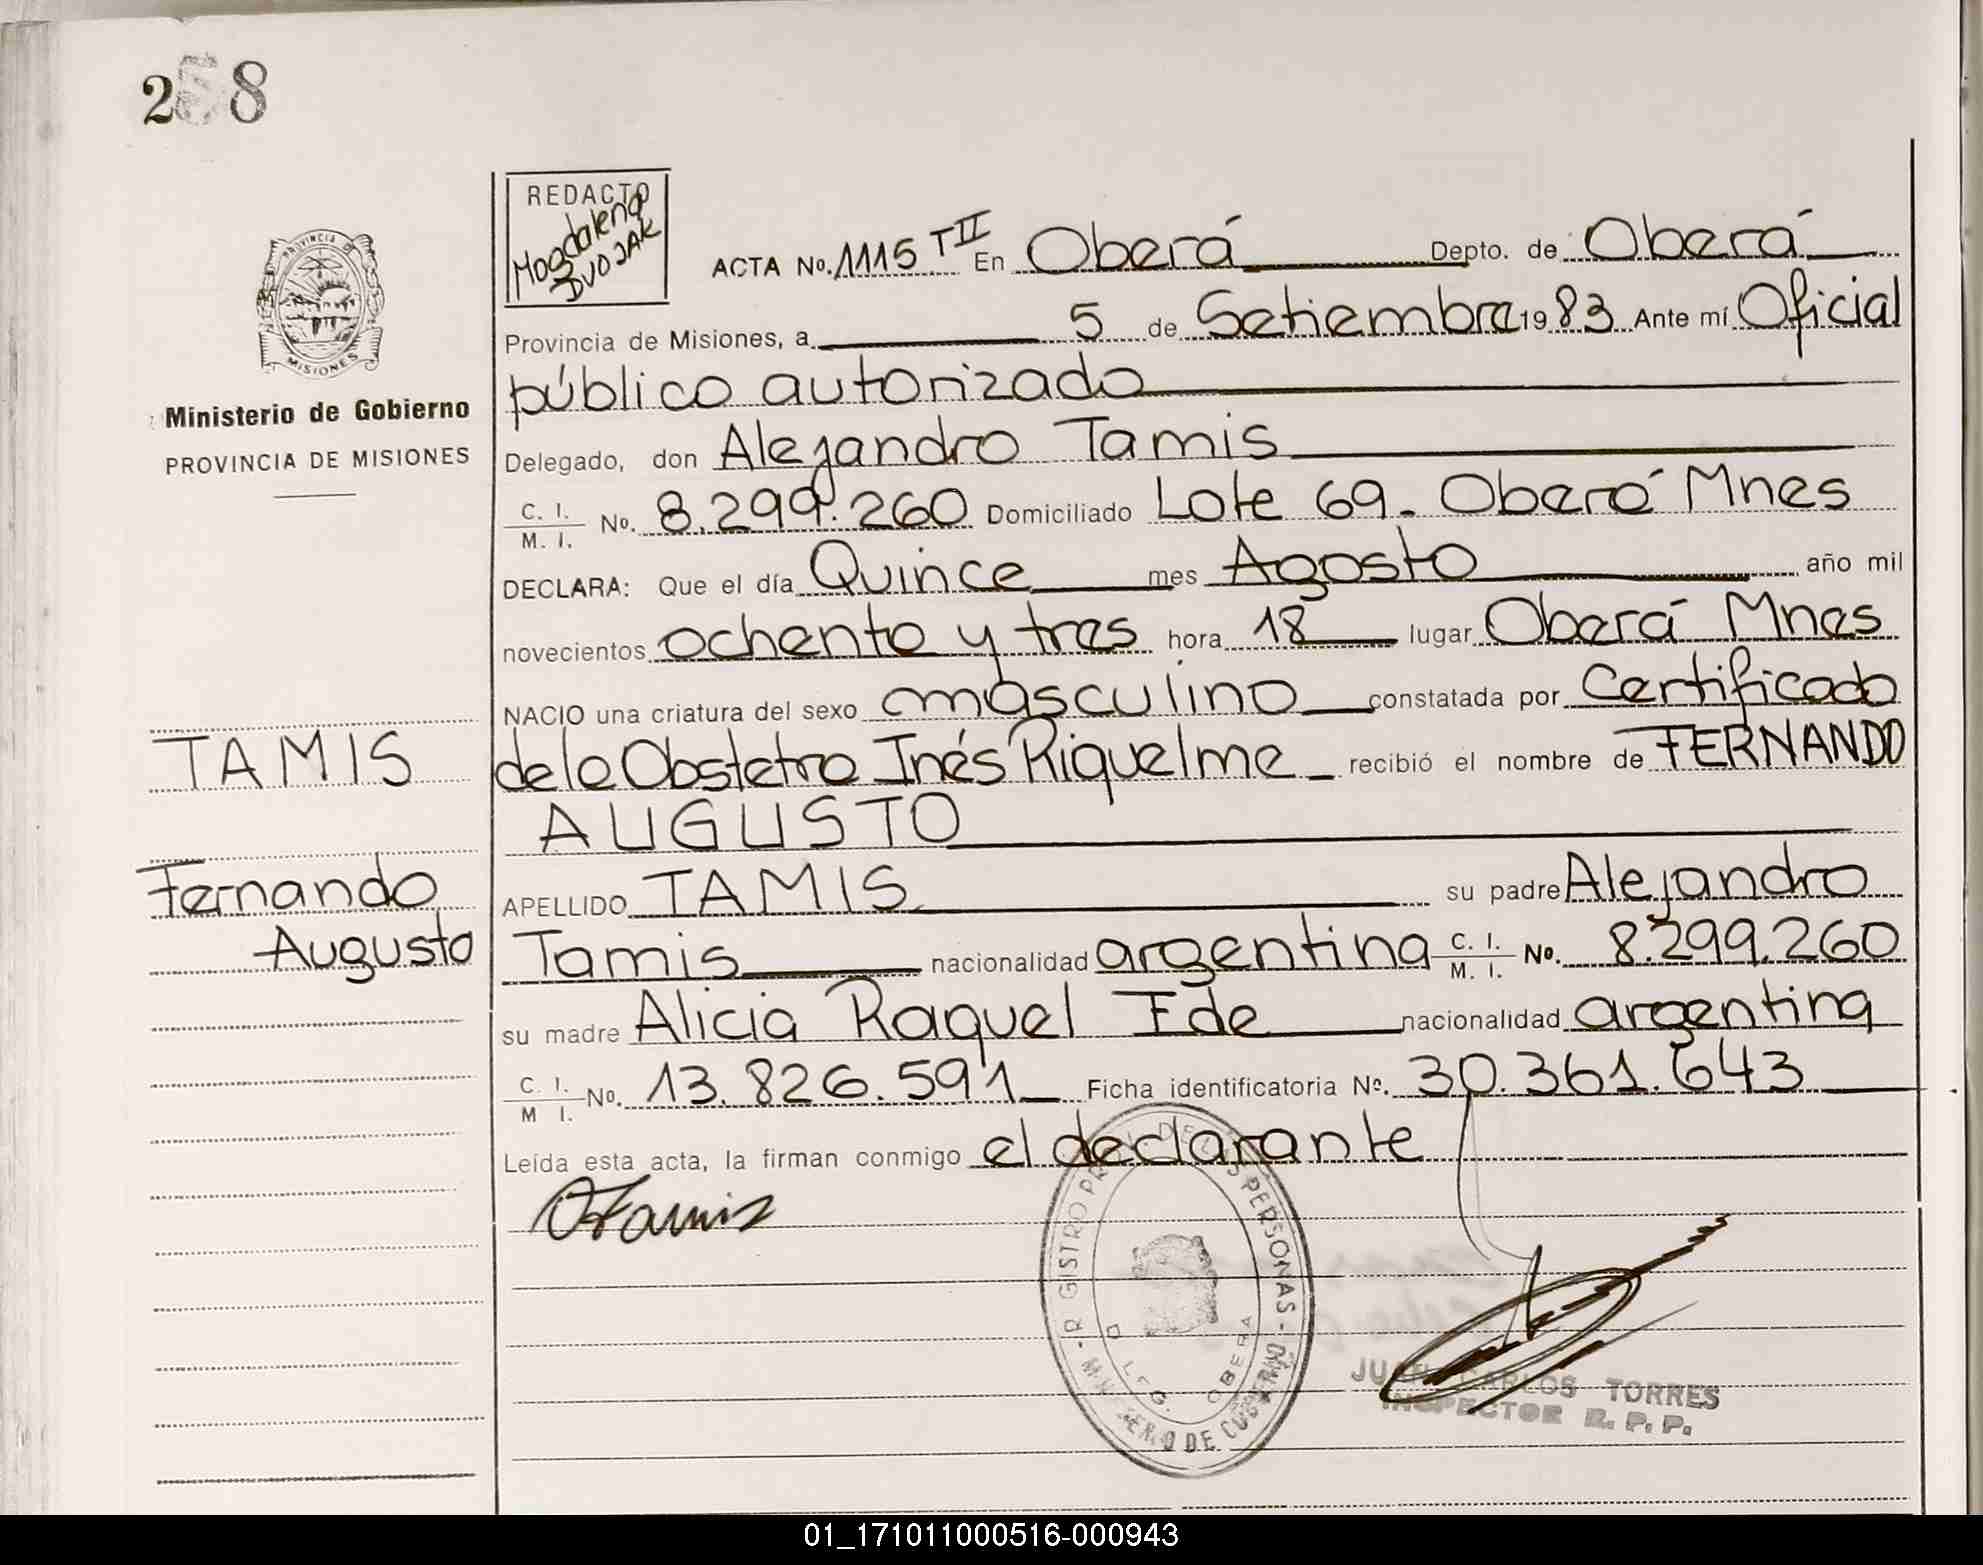 258
REDACTO
Magdalena
DVOJAK
PROVINCIA DE
MISIONES
Ministerio de Gobierno
PROVINCIA DE MISIONES
TAMIS
Fernando
Augusto
ACTA No. 1115 TII En Oberá Depto. de Oberá
Provincia de Misiones, a 5 de Setiembre 1983 Ante mí Oficial
público autorizado
Delegado, don Alejandro Tamis
C. I. / M. I. No. 8.299.260 Domiciliado Lote 69. Oberá Mnes
DECLARA: Que el día Quince mes Agosto año mil
novecientos ochenta y tres hora 18 lugar Oberá Mnes
NACIO una criatura del sexo masculino constatada por Certificado
de la Obstetra Inés Riquelme recibió el nombre de FERNANDO
AUGUSTO
APELLIDO TAMIS su padre Alejandro
Tamis nacionalidad argentina C. I. / M. I. No. 8.299.260
su madre Alicia Raquel Ede nacionalidad argentina
C. I. / M I. No. 13.826.591 Ficha identificatoria No. 30.361.643
Leída esta acta, la firman conmigo el declarante
Tamis
PERSONAS
OBERA
JUAN CARLOS TORRES
INSPECTOR R. P. P.
01_171011000516-000943